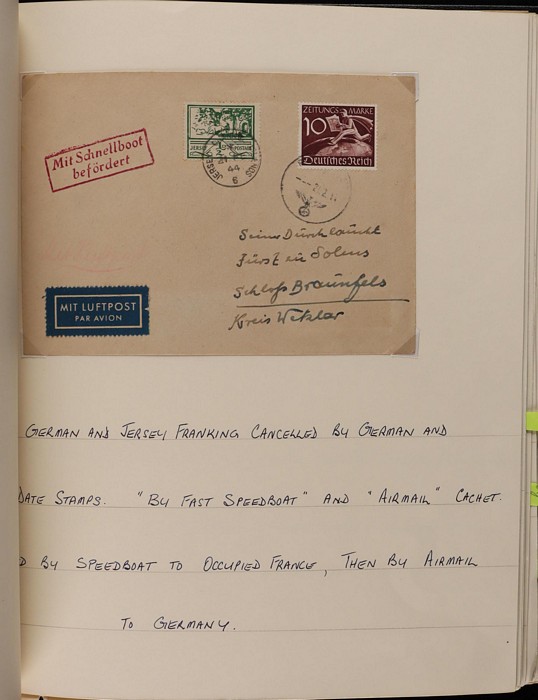 Mit Schnellboot
befördert
JERSEY
44
6
ZEITUNGS MARKE
10
Deutsches Reich
Seiner Durchlaucht
Fürst zu Solms
Schloß Braunfels
Kreis Wetzlar
MIT LUFTPOST
PAR AVION
GERMAN AND JERSEY FRANKING CANCELLED BY GERMAN AND
DATE STAMPS. "BY FAST SPEEDBOAT" AND "AIRMAIL" CACHET.
D BY SPEEDBOAT TO OCCUPIED FRANCE, THEN BY AIRMAIL
TO GERMANY.